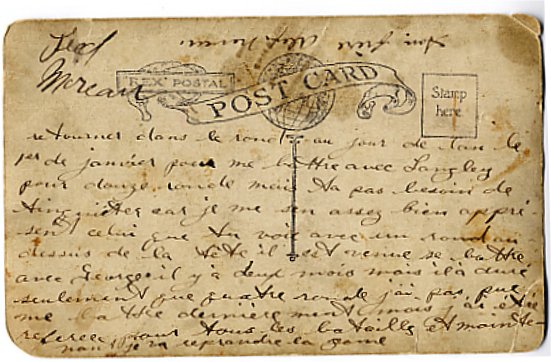 Moreau
"REX" POSTAL
POST CARD
Stamp
here
retourner dans le rond au jour de lan le
1er de janvier pour me battre avec Langley
pour douze ronde mais ta pas besoin de
tinquieter car je me sen assez bien appré-
sent celui que tu vois avec un rond au
dessus de la tête il est venue se battre
avec George il y a deux mois mais il a duré
seulement que quatre ronde j'ai pas pue
me battre dernièrement mais j'ai etre
referee pour tous les bataille et mainte-
nant je va reprendre la game
Ton frère